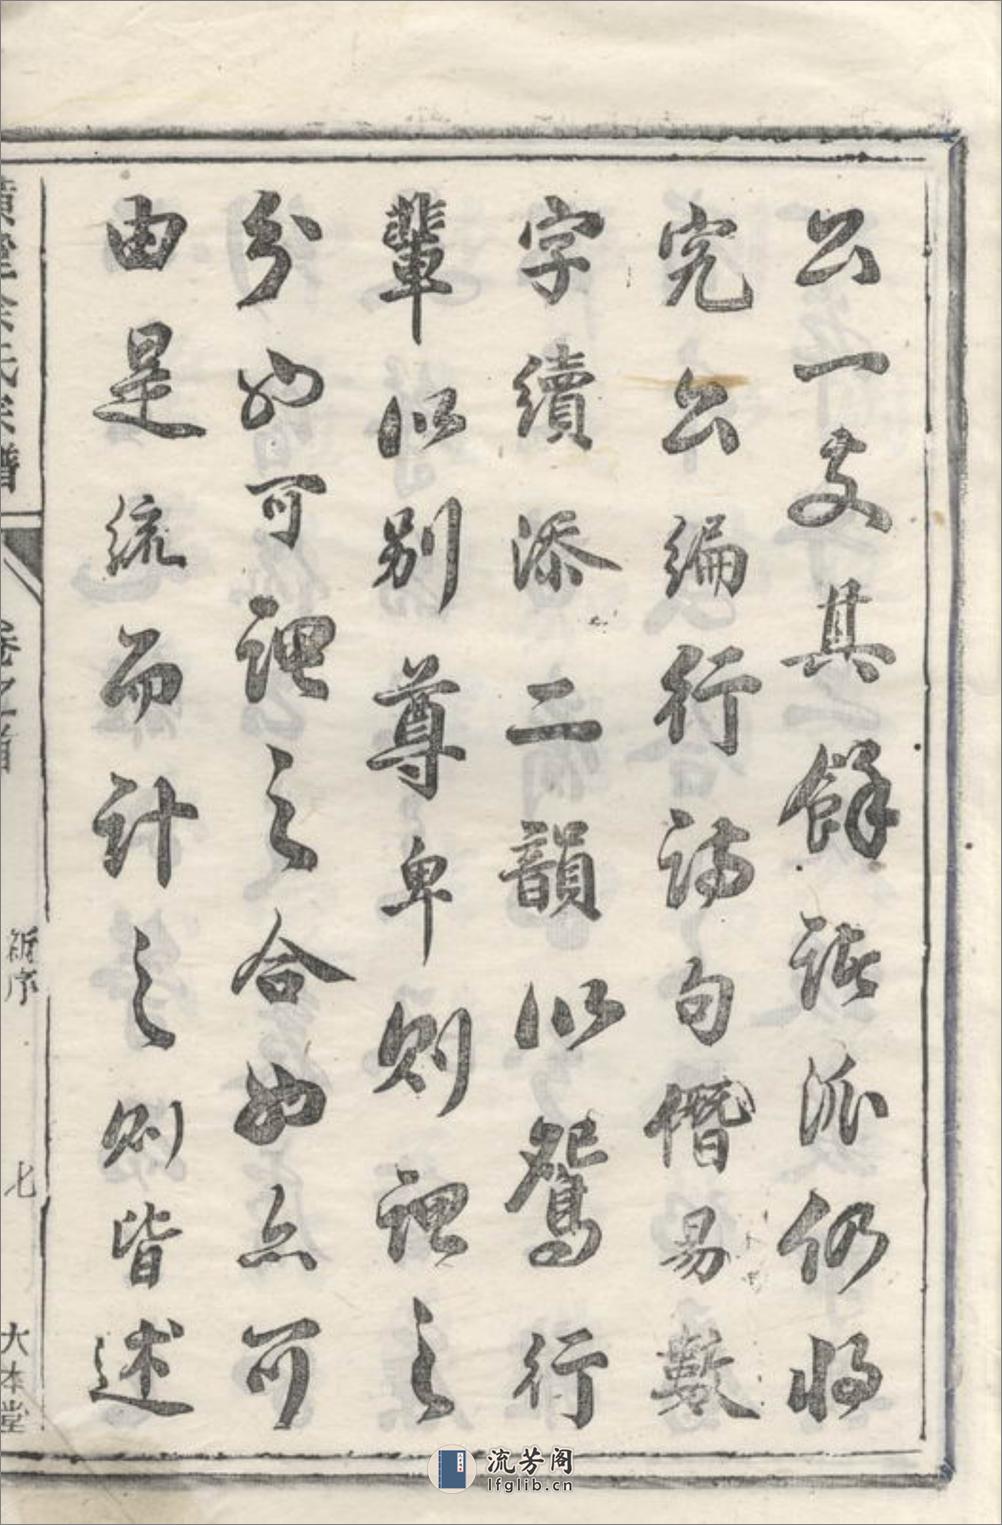 公一支其餘諸派仍將
完公編行詩句僭易數
字續添二韻以鴛行
輩以別尊卑則謂之
分如可謂之合如亦可
由是統而計之則皆述
氏族譜
卷之首
新序
七
大本堂
流芳阁
lfglib.cn